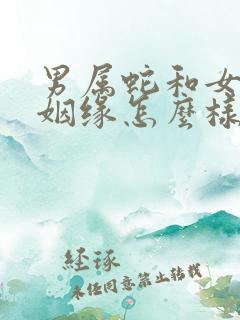 男属蛇和女
姻缘怎麽樣
经琢
未经同意禁止转载